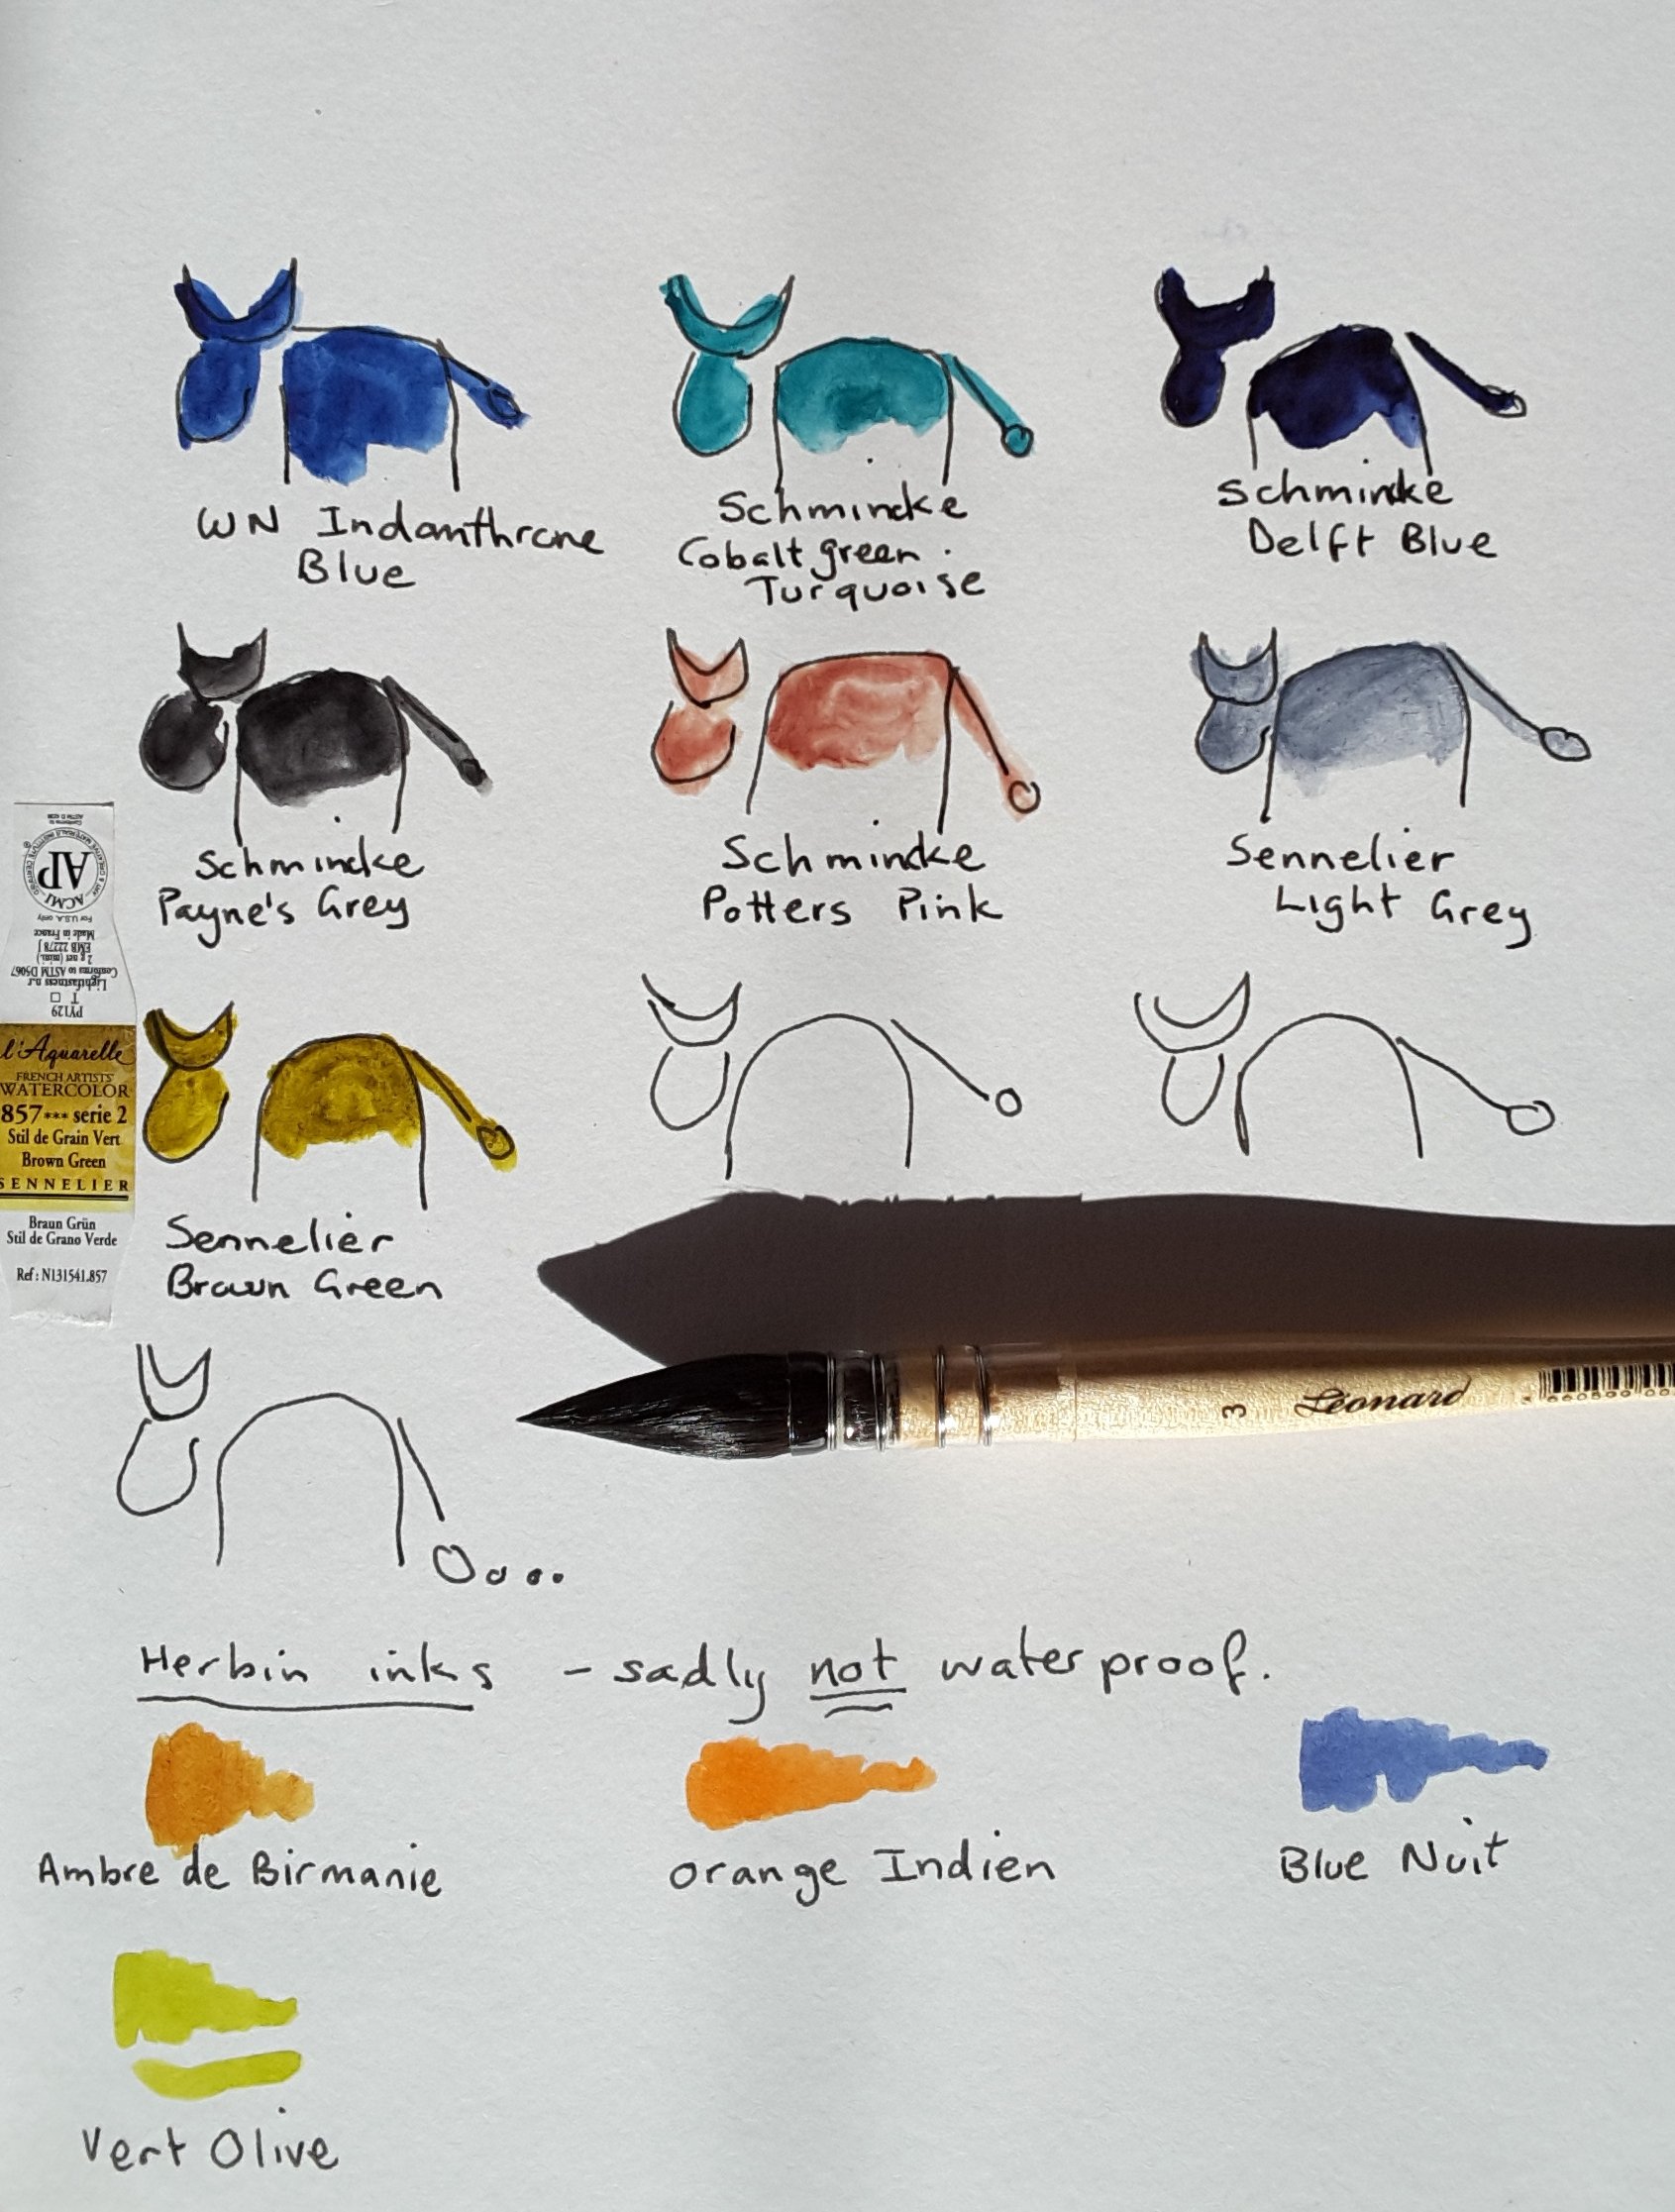 WN Indanthrone
Blue
Schmincke
Cobalt green
Turquoise
Schmincke
Delft Blue
Schmincke
Payne's Grey
Schmincke
Potters Pink
Sennelier
Light Grey
AP
ACMI
For U.S.A. only
Made in France
EMB 22278 J
2 g net (mini.)
Conforms to ASTM D5067
Lightfastness n.r
T □
PY129
l'Aquarelle
FRENCH ARTISTS'
WATERCOLOR
857*** serie 2
Stil de Grain Vert
Brown Green
SENNELIER
Braun Grün
Stil de Grano Verde
Ref : N131541.857
Sennelier
Brown Green
3 Léonard
Herbin inks - sadly not waterproof.
Ambre de Birmanie
orange Indien
Blue Nuit
Vert Olive